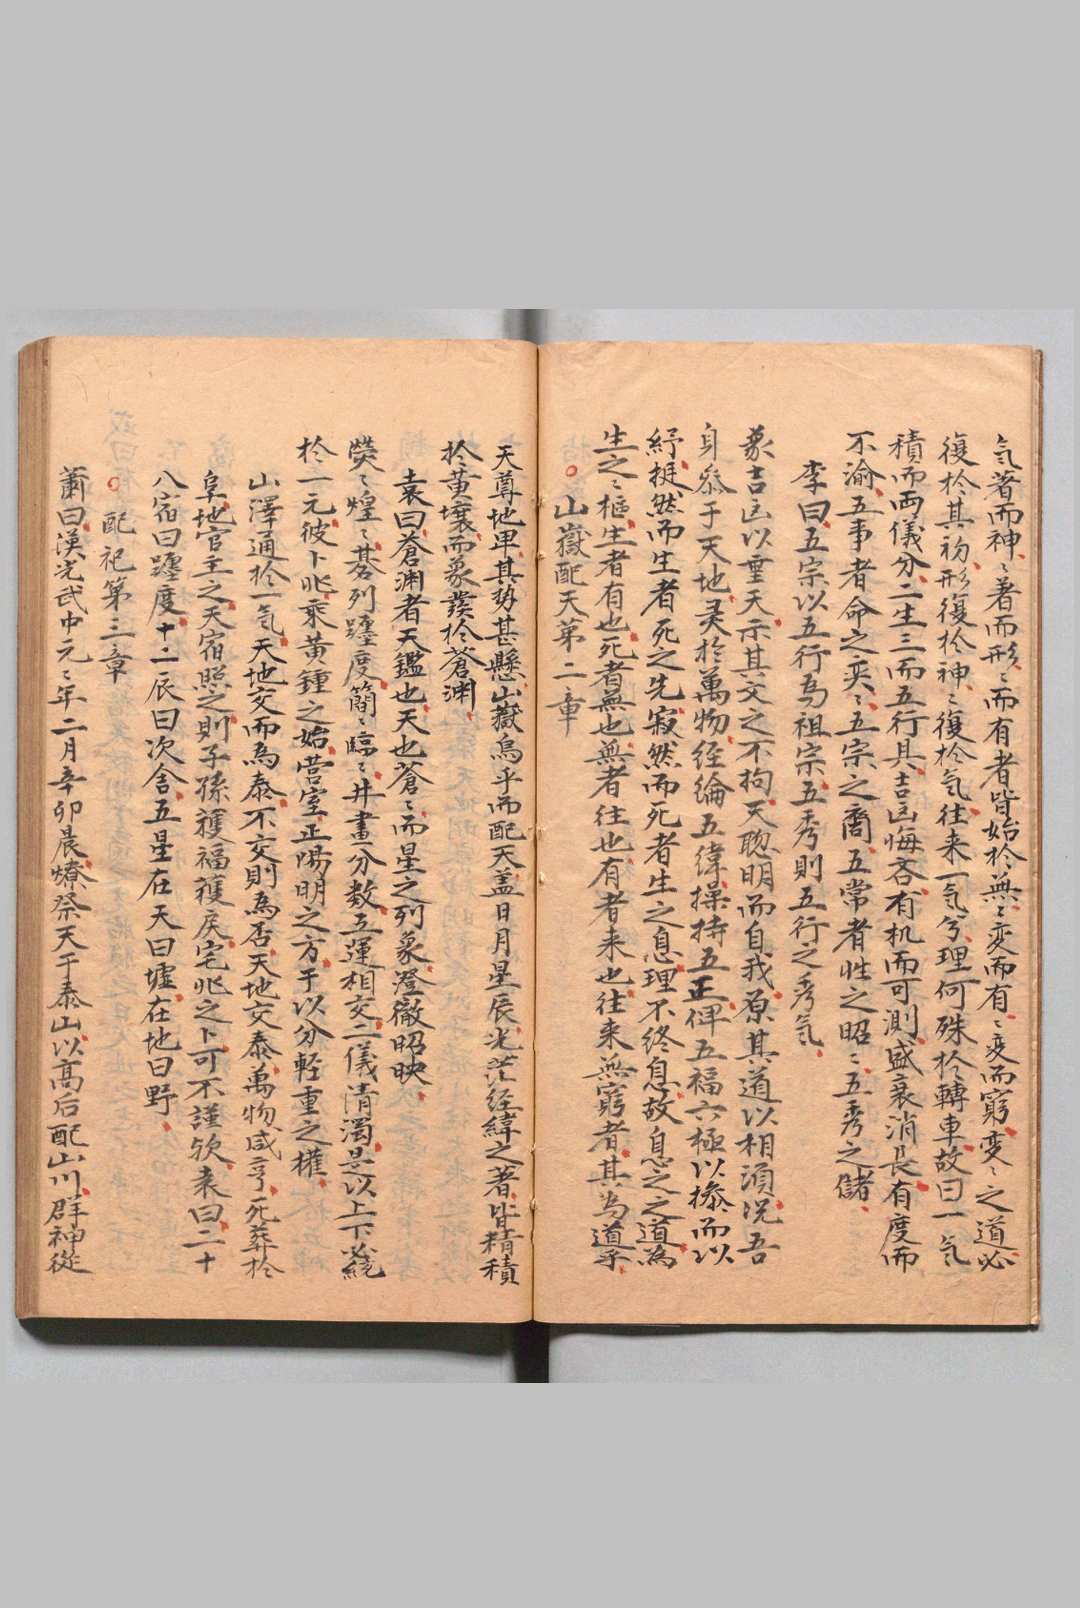 気著而神〻著而形〻而有者皆始於無〻変而有〻変而窮変〻之道必
復於其初形復於神〻復於気往来一気兮理何殊於轉車故曰一気
積而両儀分二生三而五行具吉凶悔吝有机而可測盛衰消長有度而
不渝五事者命之奕〻五宗之裔五常者性之昭〻五秀之儲
李曰五宗以五行為祖宗五秀則五行之秀気
象吉凶以垂天示其交之不拘天聡明而自我原其道以相須况吾
身叅于天地灵於萬物経綸五緯操持五正俾五福六極以摻而以
紓挺然而生者死之先寂然而死者生之息理不終息故息之之道為
生之之樞生者有也死者無也無者往也有者来也往来無窮者其為道乎
山嶽配天第二章
天尊地卑其势甚懸山嶽烏乎而配天盖日月星辰光茫経緯之著皆精積
於黄壤而象發於蒼淵
袁曰蒼渊者天鑑也天也蒼〻而星之列象澄徹昭映
熒〻煌〻碁列躔度簡〻臨〻井畫分数五運相交二儀清濁是以上下必統
於一元彼卜兆乘黄鍾之始営室正陽明之方于以分軽重之權
山澤通於一気天地交而為泰不交則為否天地交泰萬物咸亨死葬於
阜地官主之天宿照之則子孫獲福獲戻宅兆之卜可不謹欤袁曰二十
八宿曰躔度十二辰曰次舎五星在天曰墟在地曰野
配祀第三章
蕭曰漢光武中元〻年二月辛卯晨燎祭天于泰山以高后配山川群神従